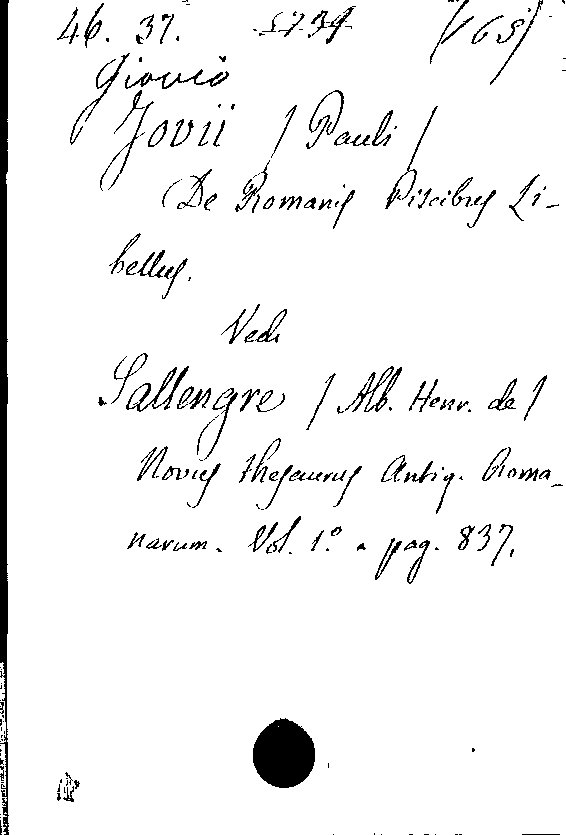 46. 37. 5739 (V 65)
Giovio
Jovii / Pauli /
De Romanis Piscibus Li-
bellus.
Vedi
Sallengre / Alb. Henr. de /
Novus thesaurus Antiq. Roma-
narum. Vol. 1.º a pag. 837.